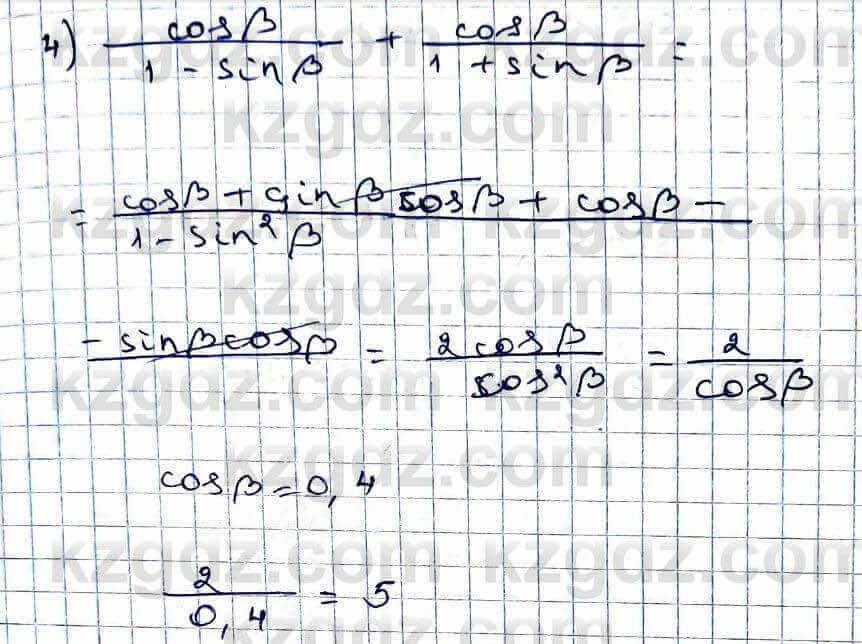 4) cosβ/(1 - sinβ) + cosβ/(1 + sinβ) =
= (cosβ + sinβ cosβ + cosβ -)/(1 - sin²β)
- sinβcosβ = 2cosβ/cos²β = 2/cosβ
cosβ = 0,4
2/0,4 = 5
kzgdz.com kzgdz.com
kzgdz.com
kzgdz.com kzgdz.com
kzgdz.com
kzgdz.com kzgdz.com
kzgdz.com
kzgdz.com kzgdz.com